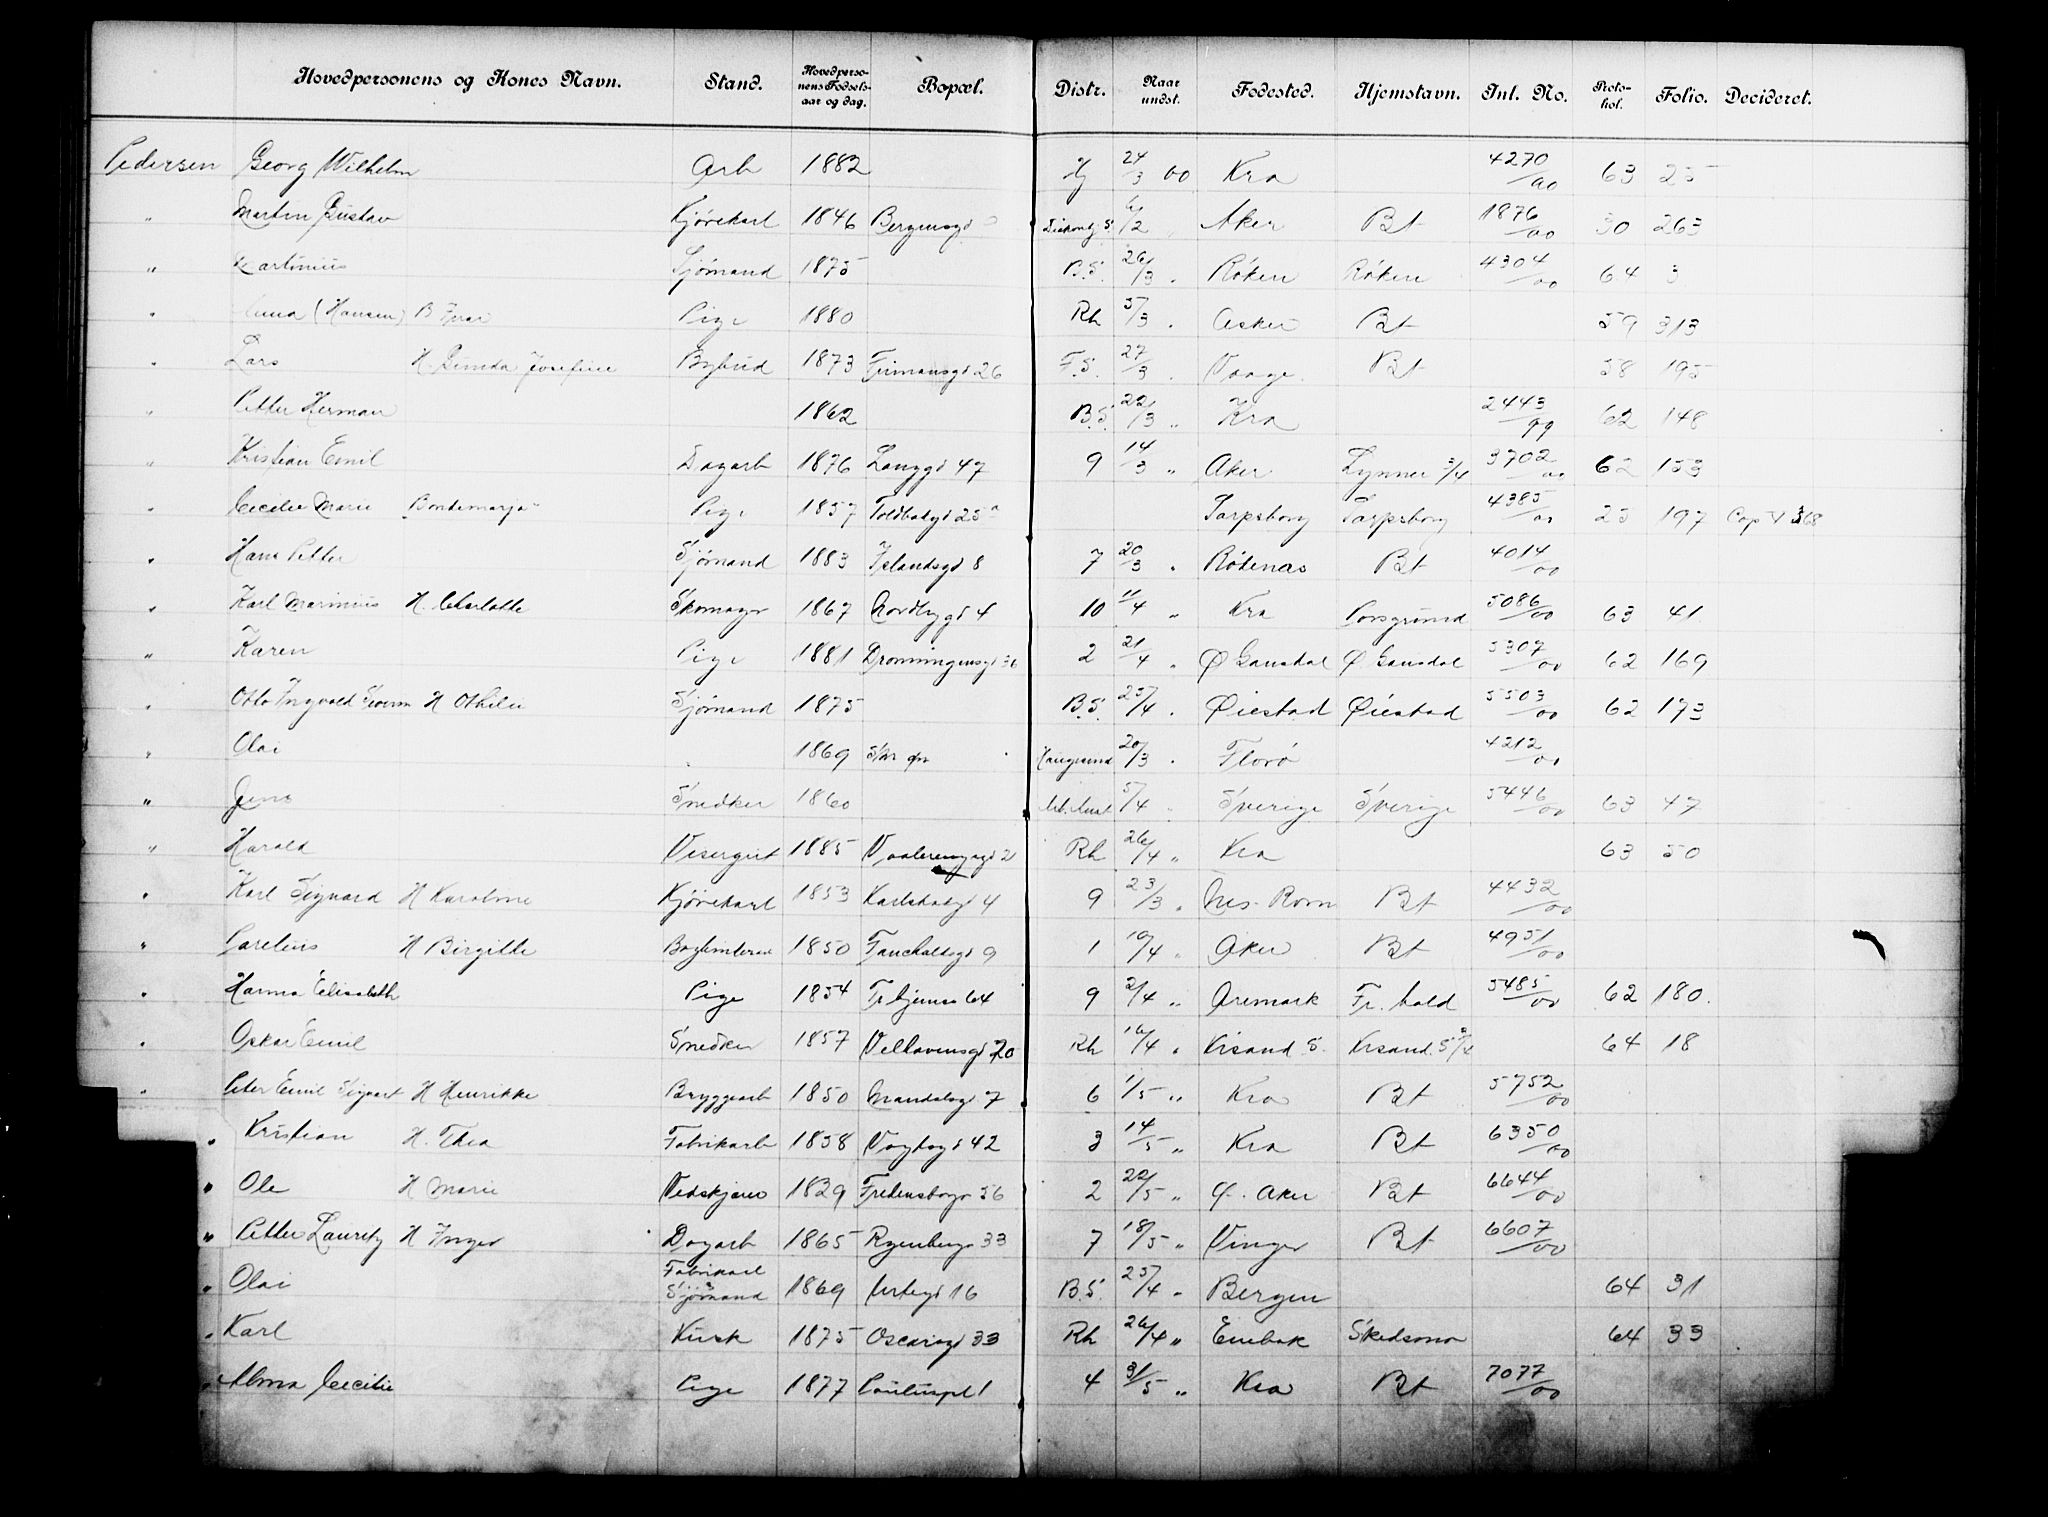 Hovedpersonens og Kones Navn. Stand. Hovedperso-nens Fødsels-aar og dag. Bopæl. Distr. Naar undst. Fødested. Hjemstavn. Int. No. Proto-kol. Folio. Decideret.
Pedersen Georg Wilhelm Arb 1882 24/3 00 Kra 4270/00 63 25
" Martin Gustav Kjørekarl 1846 Bergensgd 6/2 Aker Bt 1876/00 30 263
" Martinius Sjømand 1875 B.S. 26/3 " Røken Røken 4304/00 64 3
" Anna (Hansen) Pige 1880 Rh 5/3 " Asker Bt 59 313
" Lars H. Gunda Josefine Bybud 1873 Firmansgd 26 F.S. 27/3 " Vaage Bt 58 195
" Petter Herman 1862 B.S. 22/3 " Kra 2443/99 62 148
" Kristian Emil Dagarb 1876 Langgd 47 9 14/3 " Aker Lynner 3/4 3702/00 62 153
" Cecilie Marie Bondemarja" Pige 1857 Toldbodgd 25a Sarpsborg Sarpsborg 4385/00 25 197 Cop V 368
" Hans Petter Sjømand 1883 Islandsgd 8 7 20/3 " Rødenæs Bt 4014/00
" Karl Marinius H. Charlotte Skomager 1867 Nordbygd 4 10 11/4 " Kra Porsgrund 5086/00 63 41
" Karen Pige 1881 Dronningensgd 36 2 21/4 " Ø Gausdal Ø Gausdal 5307/00 62 169
" Otto Ingvald Severin H Othilie Sjømand 1875 B.S. 25/4 " Øiestad Øiestad 5503/00 62 173
" Olai 1869 Haugesund 20/3 " Florø 4212/00
" Jens Snedker 1860 Arb. Anst 5/4 " Sverige Sverige 5446/00 63 47
" Harald Visergut 1885 Vaalerenggd 21 Rh 26/4 " Kra 63 50
" Karl Sigvard H Karoline Kjørekarl 1853 Karlstadgd 4 9 23/3 " Nes. Rom Bt 4432/00
" Carelius H Birgitte Bogbinder 1850 Fauchaldsgd 9 1 10/4 " Aker Bt 4951/00
" Hanna Elisabeth Pige 1854 Tr.hjemsv 64 9 2/4 " Aremark Fr. hald 5485/00 62 180.
" Oskar Emil Snedker 1857 Velhavensgd 20 Rh 16/4 " Krsand S. Krsand. S 64 18
" Peter Emil Sigvart H Henrikke Bryggearb 1850 Mandalsgd 7 6 1/5 " Kra Bt 5752/00
" Kristian H. Thea Fabrikarb 1858 Vogtsgd 42 3 14/5 " Kra Bt 6350/00
" Ole H Marie Vedskjærer 1829 Fredensborgv 56 2 22/5 " Ø. Aker Bt 6644/00
" Petter Lauritz H Inger Dagarb 1865 Ryenbergv 33 7 18/5 " Vinger Bt 6607/00
" Olai Fabrikarb Sjømand 1869 Urtegd 16 B.S. 25/4 " Bergen 64 31
" Karl Kusk 1875 Oscarsgd 33 Rh 26/4 " Enebak Skedsmo 64 33
" Alma Cecilie Pige 1877 Pauluspl 1 4 31/5 " Kra Bt 7077/00